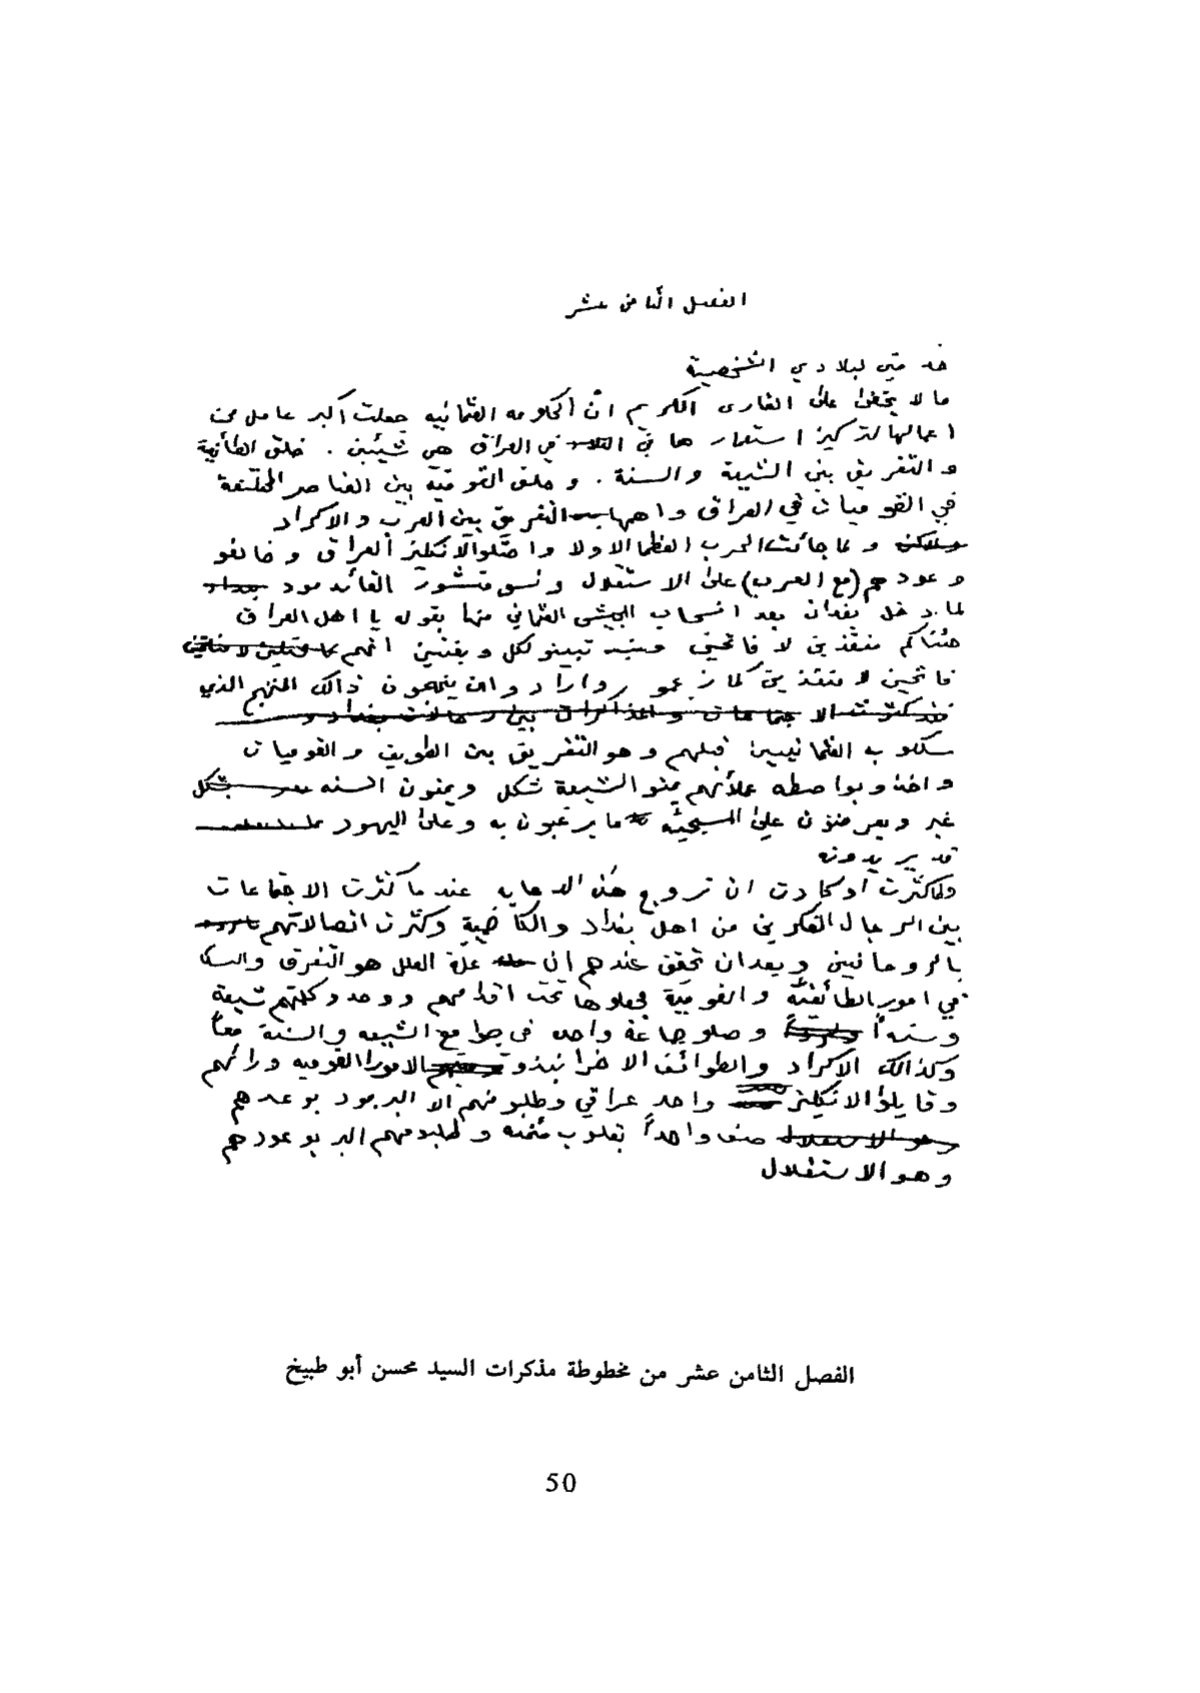 الفصل الثامن عشر
خدمتي لبلادي الشخصية
ما لا يخفى على القارى الكريم انّ الحكومه العثمانيه جعلت اكبر عامل من
اعمالها لتركيز استعمارها في العراق هي شيئين . خلق الطائفية
والتفريق بين الشيعة والسنة . وخلق القومية بين العناصر المختلفة
في القوميات في العراق واهمها التفريق بين العرب والاكراد
ولما جائت الحرب العظما الاولا واحتلوا الانكليز العراق وخانفو
وعودهم (مع العرب) على الاستقلال ونسو منشور القائد مود
لما دخل بغداد بعد انسحاب الجيش العثماني منها بقوله يا اهل العراق
جئناكم منقذين لا فاتحين تبينو لكل ويقنين انهم
فاتحين لا منقذين كما زعمو وارادو ان ينهجون ذالك المنهج الذي
سلكو به العثمانيين قبلهم وهو التفريق بين الطويف والقوميات
واخذو بواصطه عملائهم يمنو الشيعة شكل ويمنون السنه بشكل
غير ويعرضون على المسيحيه ما يرغبون به وعلى اليهود
قد يريدونه
ولما كثرت او كادت ان تروج هذه الدعايه عندما كثرت الاجتماعات
بين الرجال المفكرين من اهل بغداد والكاضمية وكثرت اتصالاتهم
بالروحانيين وبعد ان تحقق عندهم ان علة العلل هو التفرق
في امور الطائفيّة والقوميّة فجعلوها تحت اقدامهم ووحدو كلمتهم شيعة
وسنه وصلو جماعة واحده في جوامع الشيعه والسنة معاً
وكذالك الاكراد والطوائف الاخرا نبذو الامور القوميه ورائهم
وقابلو الانكليز واحد عراقي وطلبو منهم البر بوعدهم
صف واحداً بقلوب وطلبو منهم البر بوعودهم
وهو الاستقلال
الفصل الثامن عشر من مخطوطة مذكرات السيد محسن أبو طبيخ
50